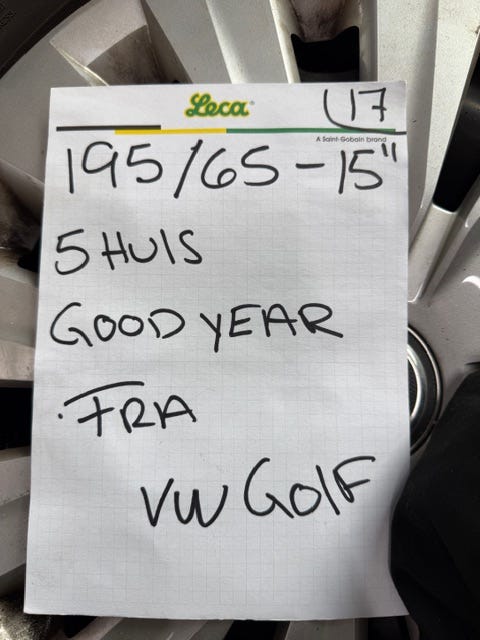 Leca®
17
A Saint-Gobain brand
195/65-15"
5 HULS
GOODYEAR
.FRA
VW GOLF